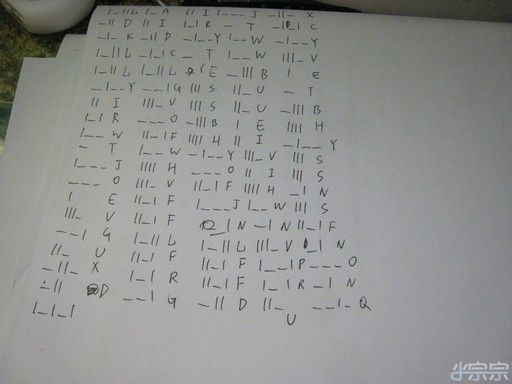 |_||L |_A ||I |___J _||_X
_||D ||I |_|R _T _|_|C
_|_K _||D _|__Y |__W _|__Y
|_||L _|_|C _T |__W |||_V
|_||L |_||L |E _|||B |E
_|__Y __|G |||S ||_U _T
||I |||_V |||S ||_U _|||B
|_|R ___O _|||B |E ||||H
|__W ||_|F ||||H ||I _|__Y
_T |__W _|__Y |||_V |||S
|___J ||||H ___O ||I |||S
___O |||_V ||_|F ||||H _|N
|E ||_|F |___J |__W |||S
|||_V ||_|F _|N _|N ||_|F
__|G |_||L |_||L |||_V _|N
||_U ||_|F ||_|F |__|P ___O
_||_X |_|R ||_|F |_|R _|N
_||D __|G _||D ||_U __|_Q
|_|_|
小宗宗